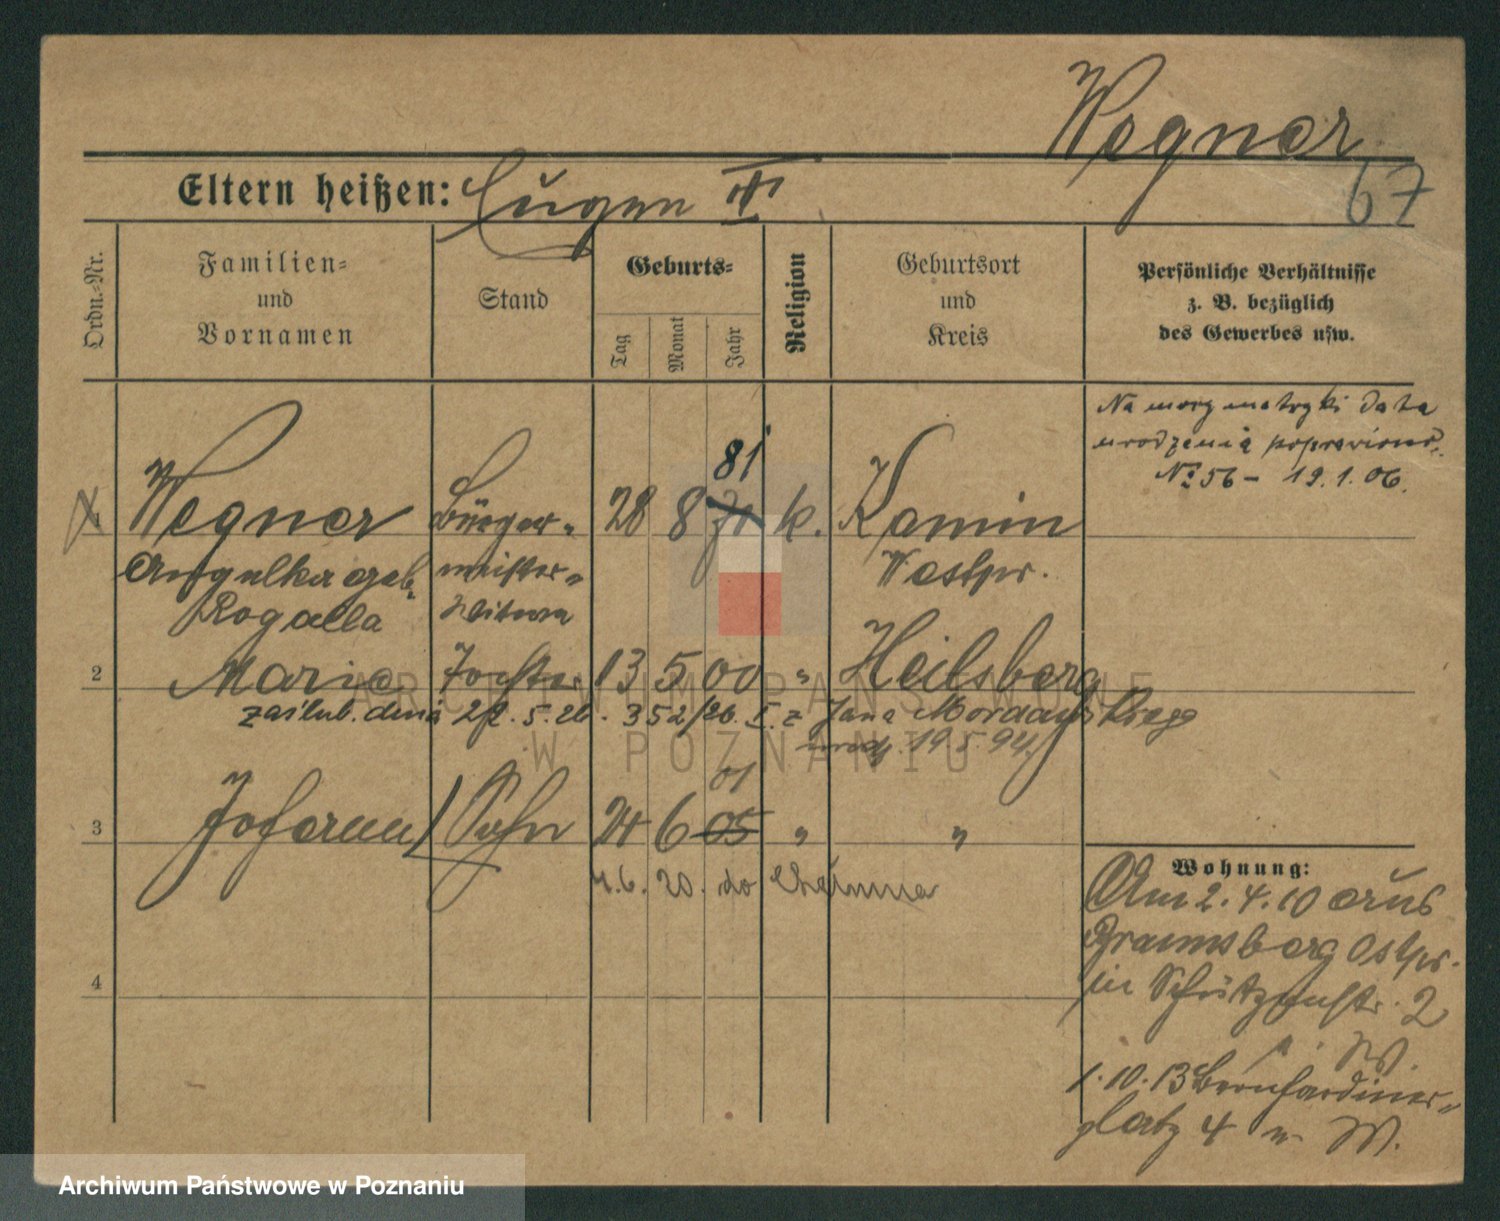 Wegner
67
Eltern heißen: Eugen II
Ordn.-Nr.
Familien-
und
Vornamen
Stand
Geburts-
Tag
Monat
Jahr
Religion
Geburtsort
und
Kreis
Persönliche Verhältnisse
z. B. bezüglich
des Gewerbes usw.
Na mocy metryki data
urodzenia
№ 56 - 19.1.06.
81
1 Wegner Bürger- 28 8 71 k. Kamin
Angelika geb. meister- Westpr.
Rogalla Witwe
2 Marie Tochter 13 5 00 " Heilsberg
zaślub. dnia 22. 5. 26. 352/26. I. z Jana
urodz. 19 5. 94.
01
3 Johann Sohn 24 6 05 " "
4.6. 20. do Chełmna
4
Wohnung:
Am 2. 4. 10 aus
Braunsberg Ostpr.
in Schützenstr. 2
W.
1. 10. 13 Bernhardiner-
platz 4 W.
ARCHIWUM PAŃSTWOWE
W POZNANIU
Archiwum Państwowe w Poznaniu